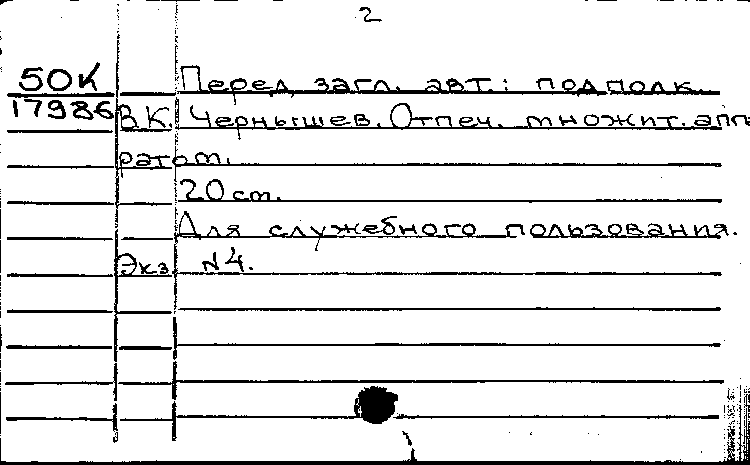 2
50К Перед загл. авт.: подполк.
17986 В.К. Чернышев. Отпеч. множит. апп
ратом.
20 см.
Для служебного пользования.
Экз. N4.